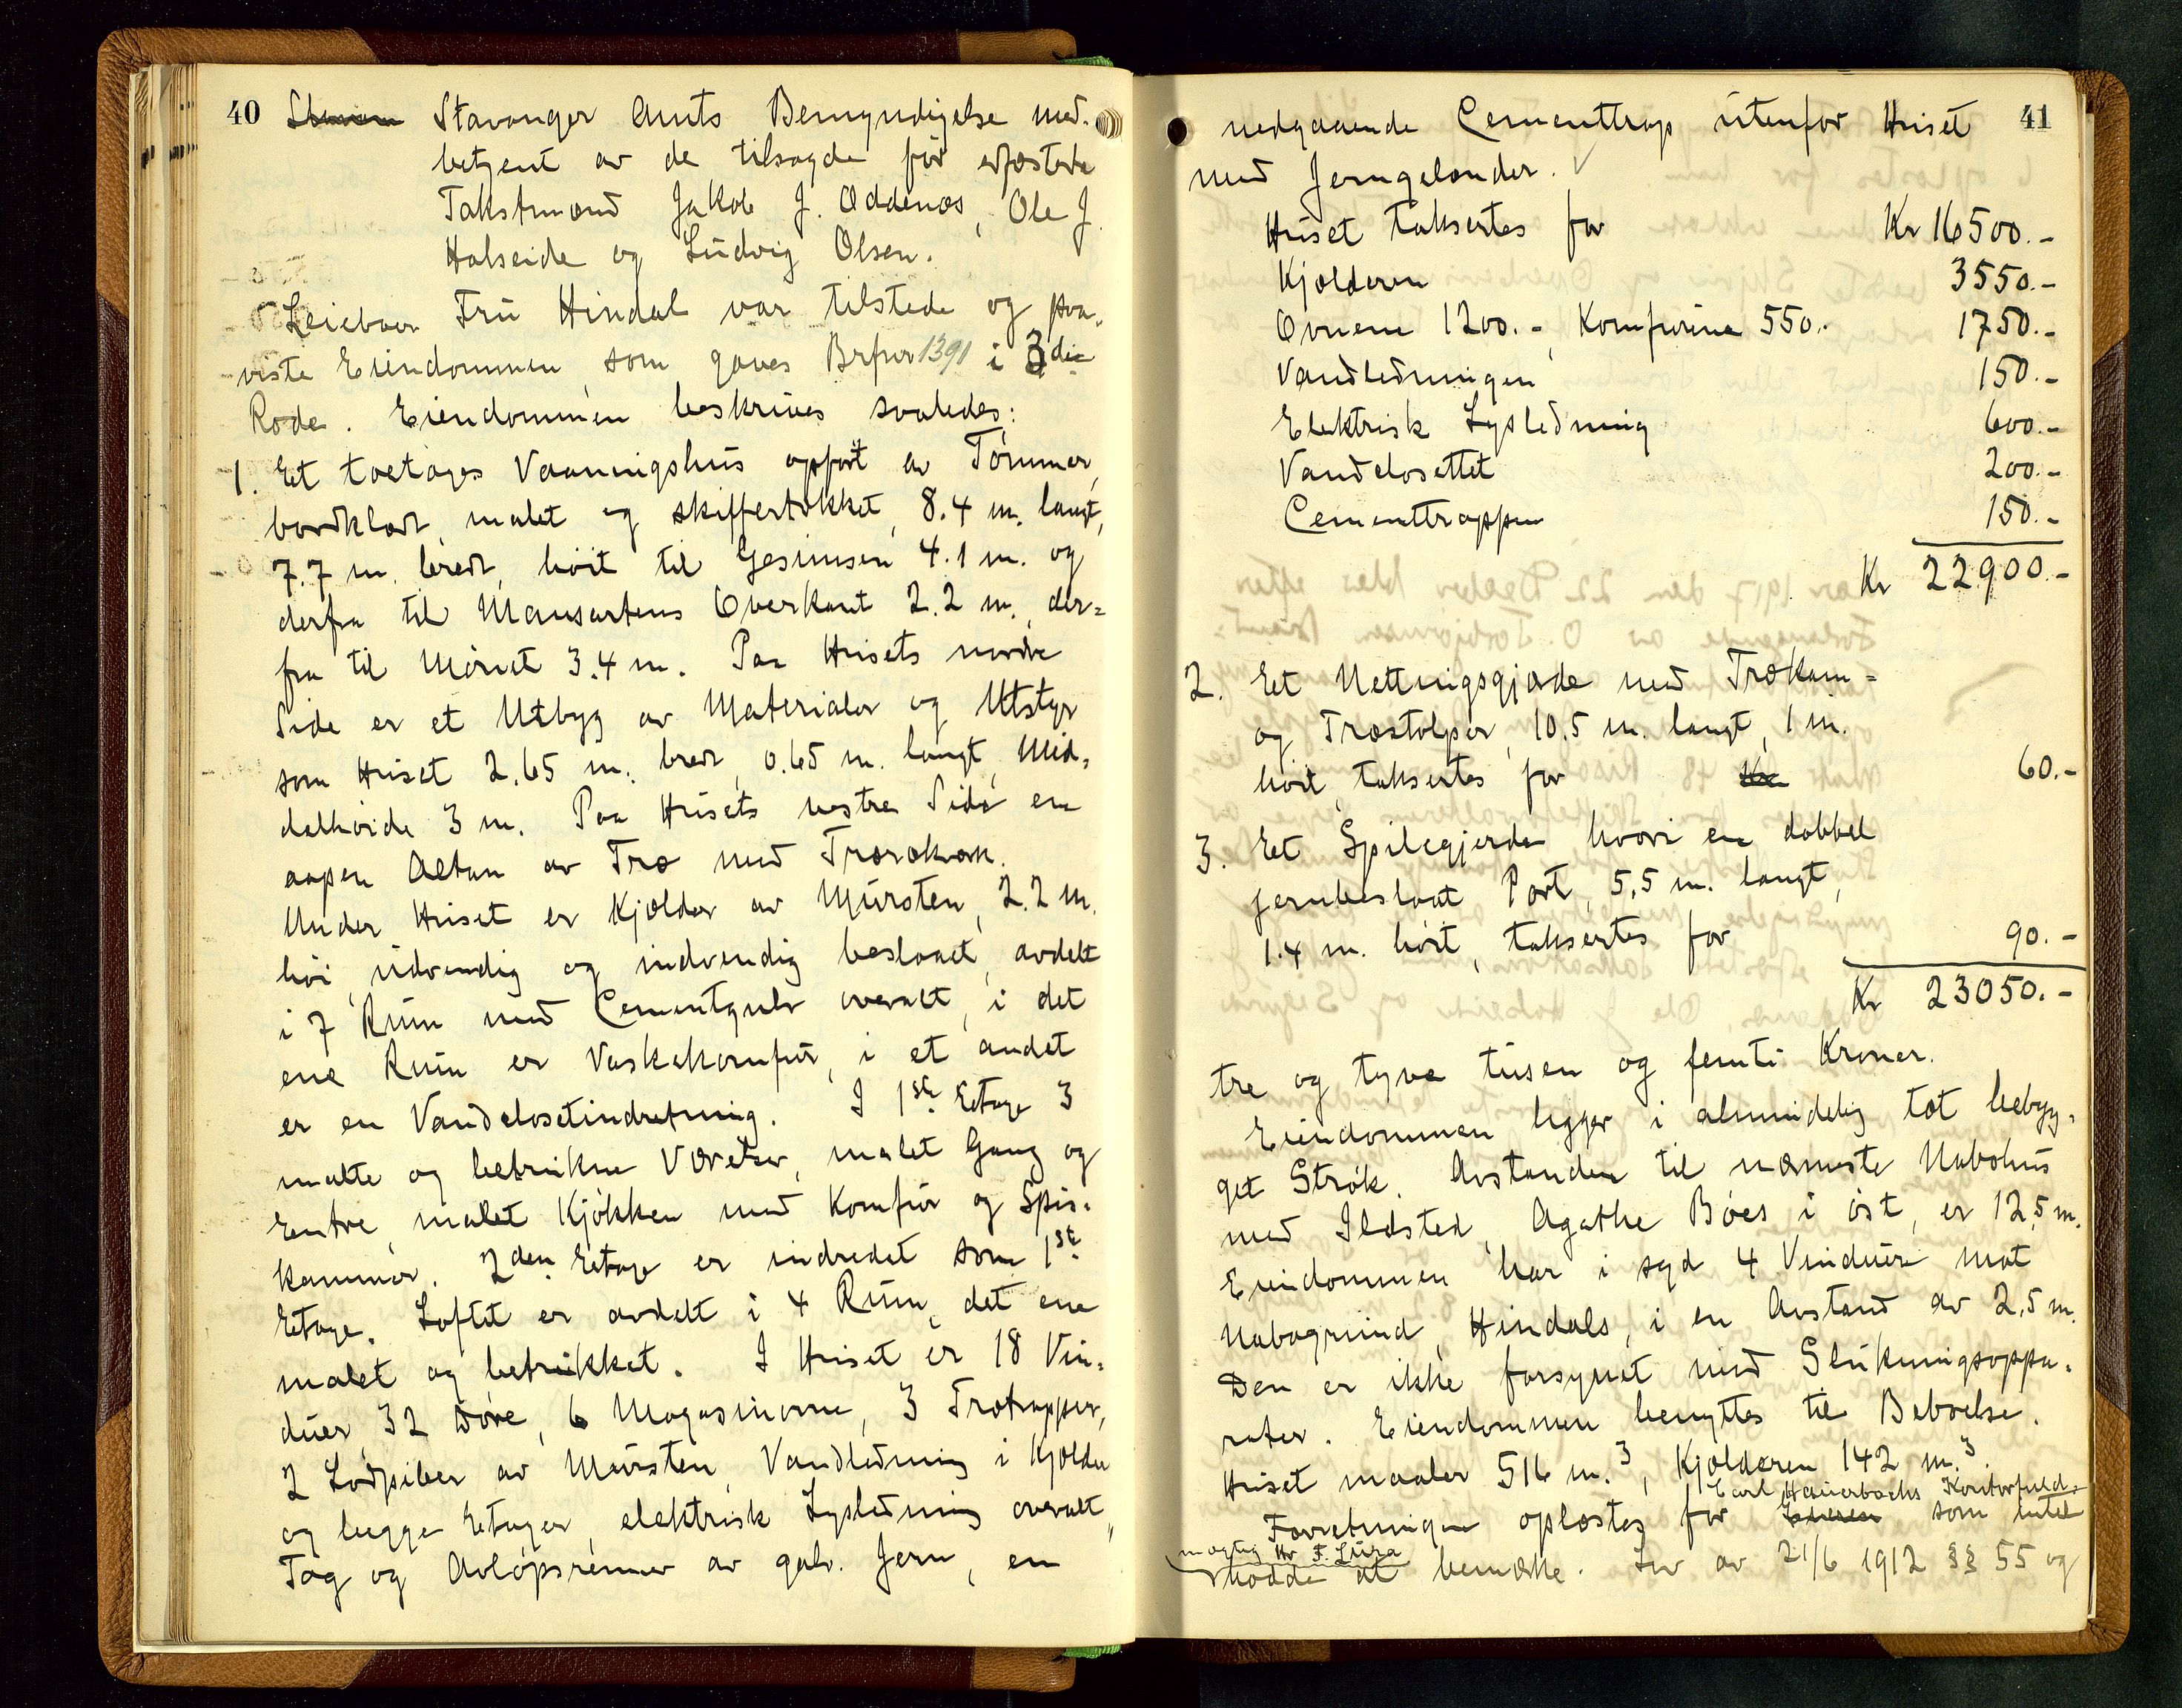 40
Stavanger Amts Bemyndigelse med-
betjent av de tilsagde før edfæstede
Takstmænd Jakob J. Øddenæs, Ole J.
Halseide og Ludvig Olsen.
Leieboer Fru Hindal var tilstede og paa-
viste Eiendommen, som gaves Brfnr 1391 i 3die
Rode. Eiendommen beskrives saaledes:
1. Et toetages Vaaningshus opført av Tømmer,
bordklædt, malet og skiffertækket, 8.4 m. langt,
7.7 m. bredt, høit til Gesimsen 4.1 m. og
derfra til Mansartens Overkant 2.2 m., der=
fra til Mønet 3.4 m. Paa Husets nordre
Side er et Utbyg av Materialer og Utstyr
som Huset 2.65 m. bredt, 0.65 m. langt, Mid-
delhøide 3 m. Paa Husets vestre Side en
aapen Altan av Træ med Trærækverk.
Under Huset er Kjælder av Mursten, 2.2 m.
høi, udvendig og indvendig beslaaet, avdelt
i 7 Rum med Cementgulv overalt, i det
ene Rum er Vaskekomfur, i et andet
er en Vandclosetindretning. I 1ste Etage 3
malte og betrukne Værelser, malet Gang og
Entre, malet Kjøkken med Komfur og Spis-
kammer. 2den Etage er indredet som 1ste
Etage. Loftet er avdelt i 4 Rum, det ene
malet og betrukket. I Huset er 18 Vin-
duer, 32 Døre, 6 Magasinovne, 3 Trætrapper,
2 Lodpiber av Mursten, Vandledning i Kjælder
og begge Etager, elektrisk Lysledning overalt,
Tag og Avløpsrenner av galv. Jern, en
41
nedgaaende Cementtrap utenfor Huset
med Jerngelænder.
Huset takseres for Kr 16500.-
Kjælderen 3550.-
Ovnene 1200.-, Komfurene 550.- 1750.-
Vandledningen 150.-
Elektrisk Lysledning 600.-
Vandclosettet 200.-
Cementtrappen 150.-
Kr 22900.-
2. Et Nettingsgjærde med Trækam=
og Træstolper, 10.5 m. langt, 1 m.
høit, takseres for Kr 60.-
3. Et Spilegjerde hvori en dobbel
jernbeslaat Port, 5.5 m. langt,
1.4 m. høit, takseres for 90.-
Kr 23050.-
tre og tyve tusen og femti Kroner.
Eiendommen ligger i almindelig tæt bebyg-
get Strøk. Avstanden til nærmeste Nabohus
med Ildsted, Agathe Bøes i øst, er 12,5 m.
Eiendommen har i syd 4 Vinduer mot
Nabogrund, Hindals, i en Avstand av 2,5 m.
Den er ikke forsynet med Slukningsappa-
rater. Eiendommen benyttes til Beboelse.
Huset maaler 516 m.³, Kjælderen 142 m.³.
Carl Hauerbachs Kontorfuld=
Forretningen oplæstes for Eieren som intet
mægtig Hr F. Lura
hadde at bemærke. Lov av 21/6 1912 §§ 55 og